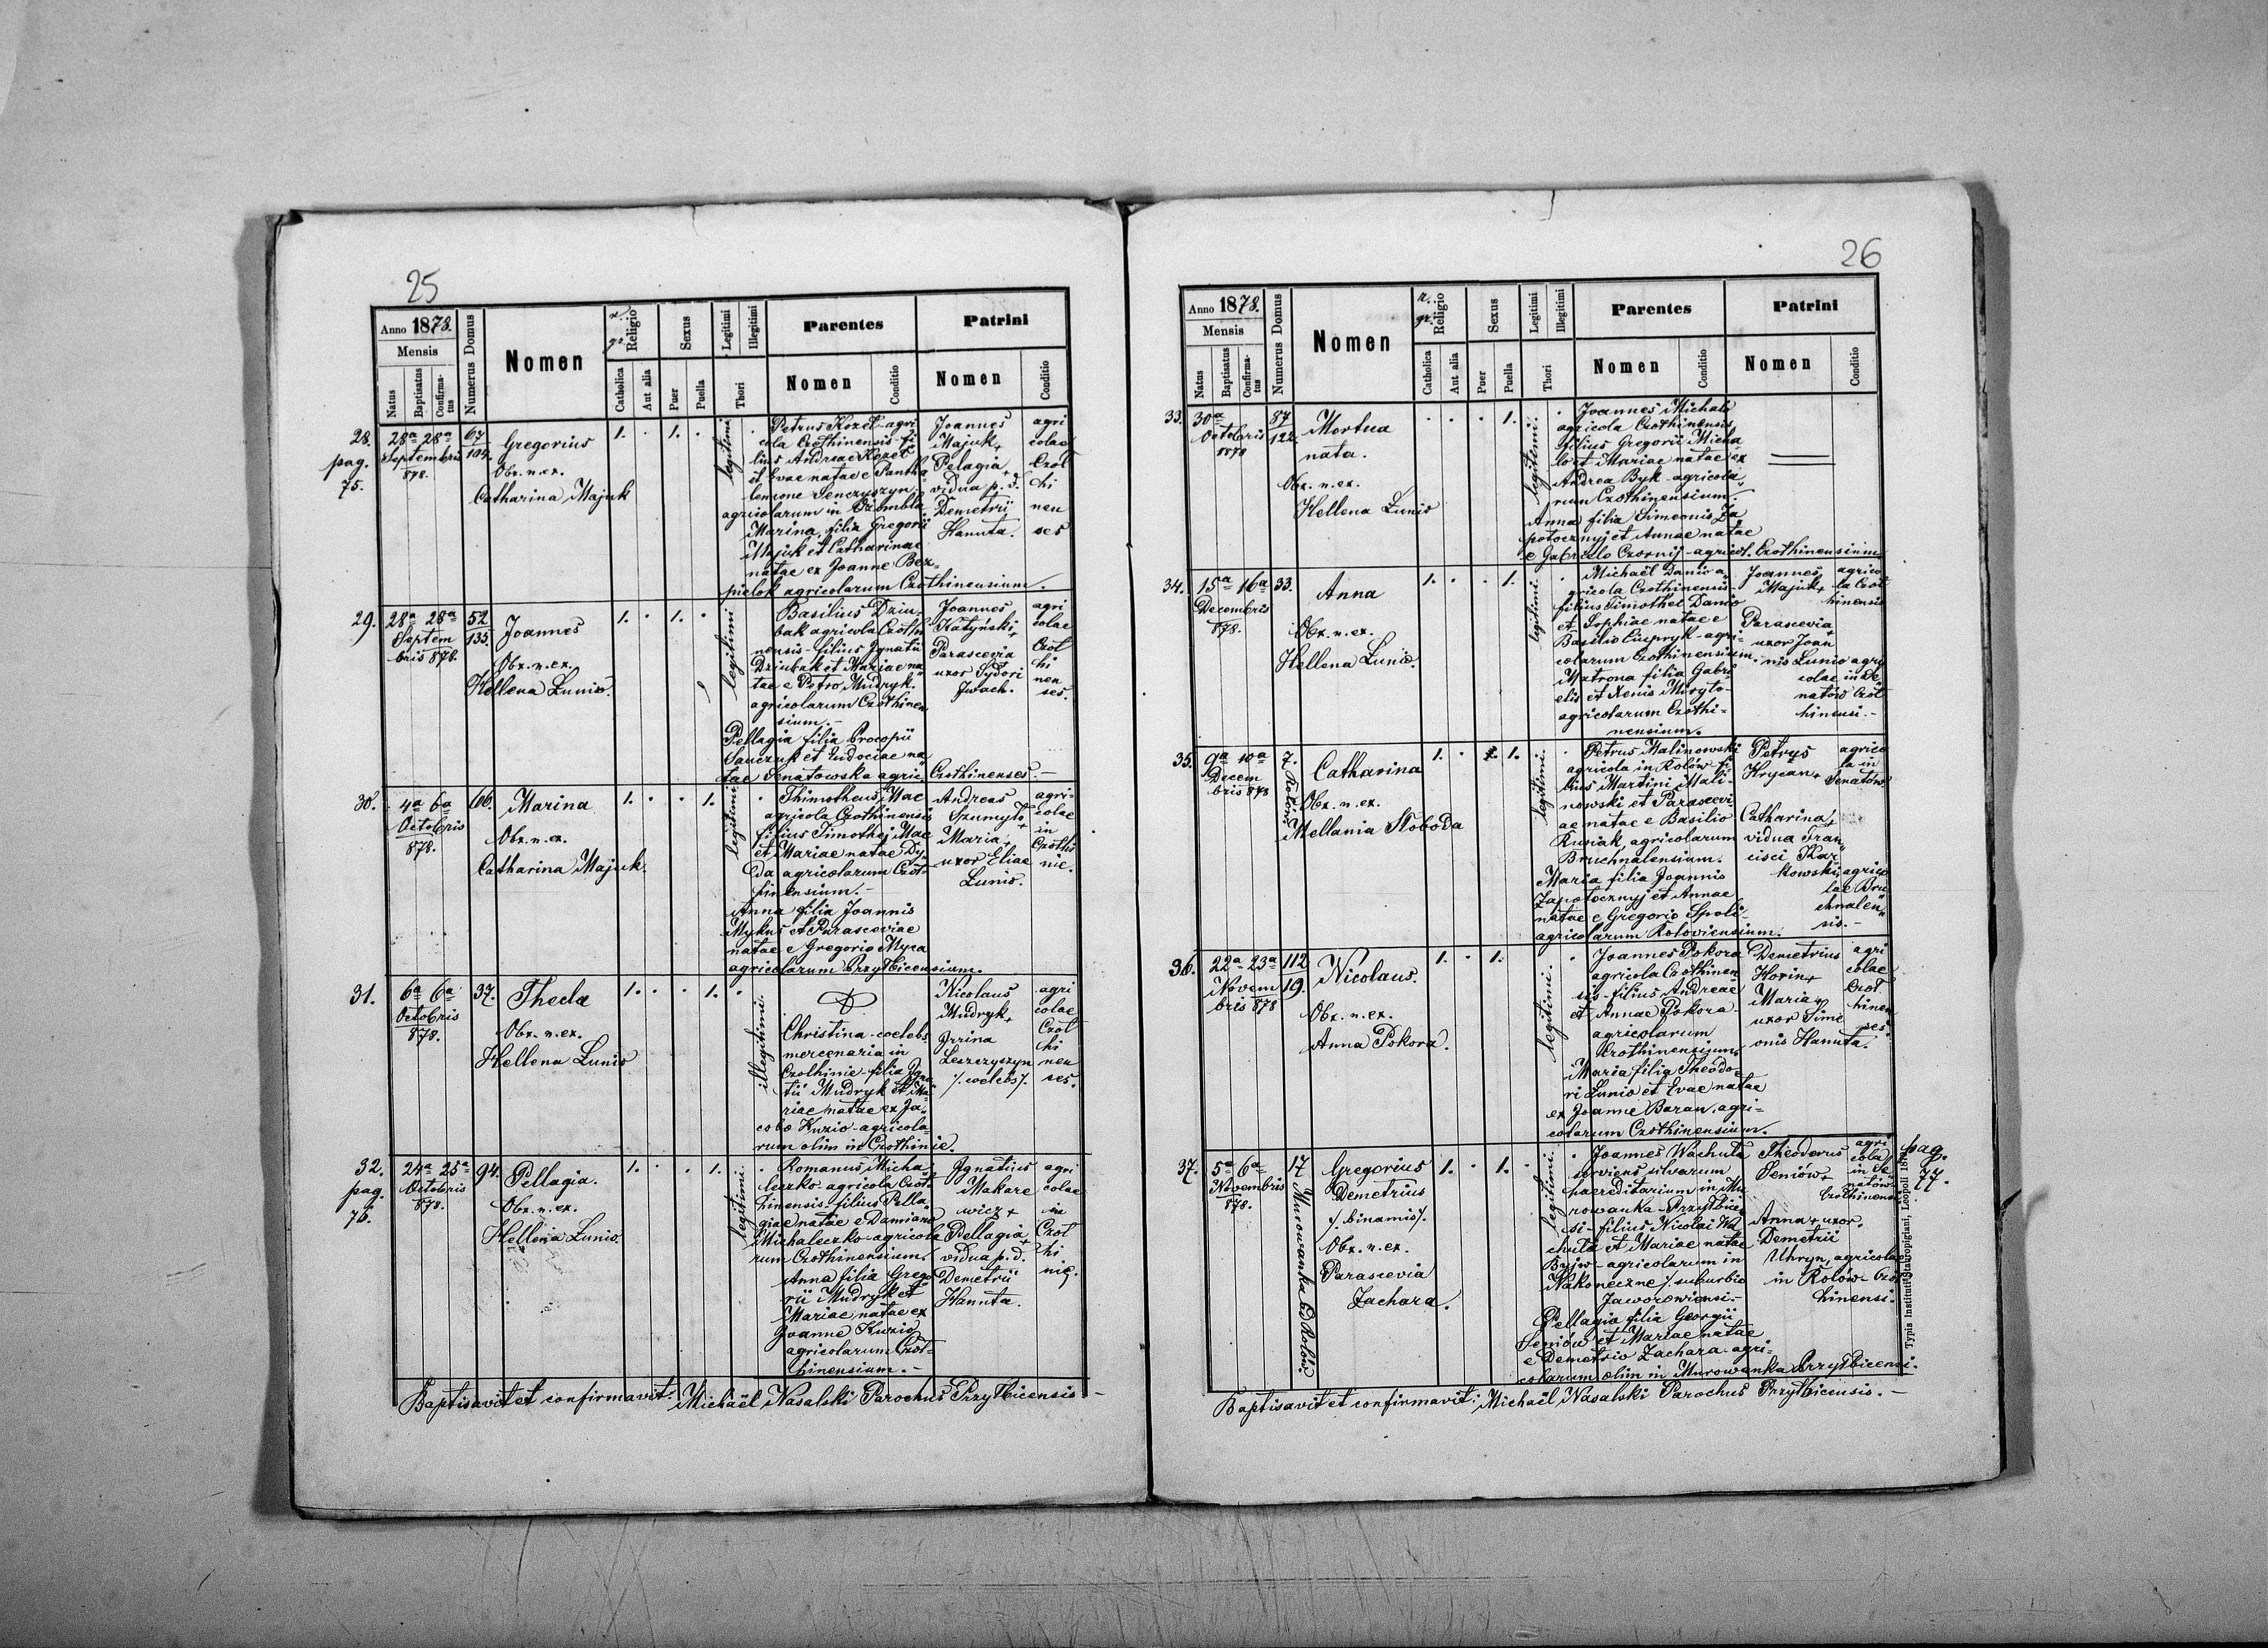 25
Anno 1878.
Mensis
Natus
Baptisatus
Confirma-
tus
Numerus Domus
Nomen
r. gr.
Religio
Catholica
Aut alia
Sexus
Puer
Puella
Legitimi
Illegitimi
Thori
Parentes
Nomen
Conditio
Patrini
Nomen
Conditio
28.
pag.
75.
28a 28a
Septembris
878.
67
104.
Gregorius
Obx. n. ex.
Catharina Majuk
1. . 1. .
legitimi
Petrus Kozet agri
cola Czothinensis fi
lius Andreae Kozet
et Evae natae e Pantha
lemone Senczyszyn
agricolarum in
Marina filia Gregorii
Majuk et Catharinae
natae ex Joanne Bez
pielok agricolarum Czothinensium.
Joannes
Majuk +
Pelagia
vidua p. d.
Demetrii
Hanuta.
agri
colae
Czot
hi
nen
ses
29.
28a 28a
Septem
bris 878.
52
135.
Joannes
Obx. n. ex.
Hellena Lunio.
1. . 1. .
legitimi
Basilius Dziu
bak agricola Czothi
nensis - filius Ignatii
Dziubak et Mariae na
tae e Petro Mudryk
agricolarum Czothinen
sium. -
Pellagia filia Procopii
Sauczuk et Eudociae na
tae Senatowska agric Czothinenses. -
Joannes
Katyński +
Parascevia
uxor Sydori
Jwach.
agri
colae
Czot
hi
nen
ses.
30.
4a 6a
Octobris
878.
66.
Marina
Obx. n. ex.
Catharina Majuk.
1. . . 1.
legitimi
Thimotheus Mac
agricola Czothinensis
filius Timothej Mac
et Mariae natae Dy
da agricolarum Czot-
hinensium. -
Anna filia Joannis
Mykus et Parasceviae
natae e Gregorio Myca
agricolarum Przytbicensium.
Andreas
Szumyto +
Maria +
uxor Eliae
Lunio.
agri-
colae
in
Czothi
nie.
31.
6a 6a
Octobris
878.
37.
Thecla
Obx. n. ex.
Hellena Lunio
1. . . 1.
illegitimi.
Christina - coelebs
mercenaria in
Czothinie - filia Igna
tii Mudryk et Ma
riae natae ex Ja
cobo Kuzio - agricola
rum olim in Czothinie.
Nicolaus
Mudryk +
Irrina
Leszczyszyn
/. coelebs /.
agri
colae
Czot
hi
nen
ses.
32.
pag.
76.
24a 25a
Octobris
878.
94.
Pellagia.
Obx. n. ex.
Hellena Lunio.
1. . . 1.
legitimi.
Romanus Micha
leczko agricola Czot
hinensis - filius Pella
giae natae e Damiano
Michaleczko - agricola
rum Czothinensium.
Anna filia Grego
rii Mudryk et
Mariae natae ex
Joanne Kuzio
agricolarum Czot-
hinensium. -
Ignatius
Makare
wicz +
Pellagia
vidua p. d.
Demetrii
Hannta.
agri
colae
in
Czot
hi
nie.
Baptisavit et confirmavit: Michaël Nasalski Parochus Przytbicensis -
26
Anno 1878.
Mensis
Natus
Baptisatus
Confirma-
tus
Numerus Domus
Nomen
r. gr.
Religio
Catholica
Aut alia
Sexus
Puer
Puella
Legitimi
Illegitimi
Thori
Parentes
Nomen
Conditio
Patrini
Nomen
Conditio
33.
30a
Octobris
1878
87
122.
Mortua
nata.
Obx. n. ex.
Hellena Lunio
. . . 1.
legitimi.
Joannes Michalo
agricola Czothinensis
filius Gregorii Micha
lo et Mariae natae ex
Andrea Byk - agricola
rum Czothinensium.
Anna filia Simeonis Za
potocznyj et Annae natae
e Gabrielo Czornij - agricol. Czothinensium
34.
15a 16a
Decembris
878.
33.
Anna
Obx. n. ex.
Hellena Lunio.
1. . . 1.
legitimi.
Michaël Danio a
gricola Czothinensis
filius Timothei Danio
et Sophiae natae e
Basilio Ciupryk - agri-
colarum Czothinensium.
Matrona filia Gabri
elis et Xenis Miryto-
agricolarum Czothi-
nensium.
Joannes
Majuk +
Parascevia +
uxor Joan
nis Lunio agri
colae in Se
natów Czot
hinensi. -
agrico
la Czot
hinensis
35.
9a 10a
Decem
bris 878
7. Rolów
Catharina
Obx. n. ex.
Mellania Stoboda
1. . . 1.
legitimi.
Petrus Malinowski
agricola in Rolów fi
lius Martini Mali-
nowski et Parascevi
ae natae e Basilio
Kusiak agricolarum
Bruchnalensium.
Maria filia Joannis
Zapotocznyj et Annae
natae e Gregorio Spoli-
agricolarum Roloviensium.
Petrus
Hrycan +
Catharina +
vidua Fran
cisci Kar
kowski, agrico
lae Bru
chnalen
sis. -
agrico
la in
Senatów
36.
22a 23a
Novem
bris 878
112
19.
Nicolaus.
Obx. n. ex.
Anna Pokora.
1. . 1.
legitimi.
Joannes Pokora
agricola Czothinen
sis - filius Andreae
et Annae Pokora -
agricolarum
Czothinensium.
Maria filia Theodo
ri Lunio et Evae natae
ex Joanne Baran. agri-
colarum Czothinensium.
Demetrius
Horin +
Maria +
uxor Sime
onis Hanuta.
agri
colae
Czot
hinen
ses.
37.
5a 6a
Novembris
878.
17
Murowanka ad Rolów.
Gregorius
Demetrius
/. binamis /.
Obx. n. ex.
Parascevia
Zachara.
1. . 1. .
legitimi.
Joannes Wachuta
serviens silvarum
haereditarium in Mu
rowanka - Przytbice
si - filius Nicolai Wa
chuta et Mariae natae
Bzjw - agricolarum in
Nakoneczne /. suburbio
Jaworowiensi. -
Pellagia filia Georgii
Seniów et Mariae natae
e Demetrio Zachara - agri-
colarum olim in Murowanka Przytbicensi.
Theodorus
Seniów +
Anna + uxor
Demetrii
Uhryn, agricolae
in Rolów - Czot
hinensi.
agri
cola
in Se
natów
Czothinensi
pag.
77.
Typis Instituti Stauropigiani, Leopoli
Baptisavit et confirmavit: Michaël Nasalski Parochus Przytbicensis. -